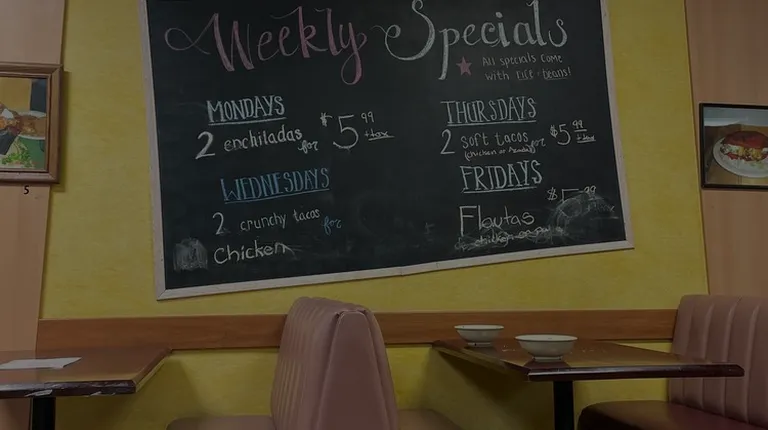 Weekly Specials
★ All specials come
with rice & beans!
MONDAYS
2 enchiladas for $5.99
+tax
WEDNESDAYS
2 crunchy tacos for
Chicken
THURSDAYS
2 soft tacos for $5.99
+tax
(chicken or
FRIDAYS
Flautas
chicken or
5